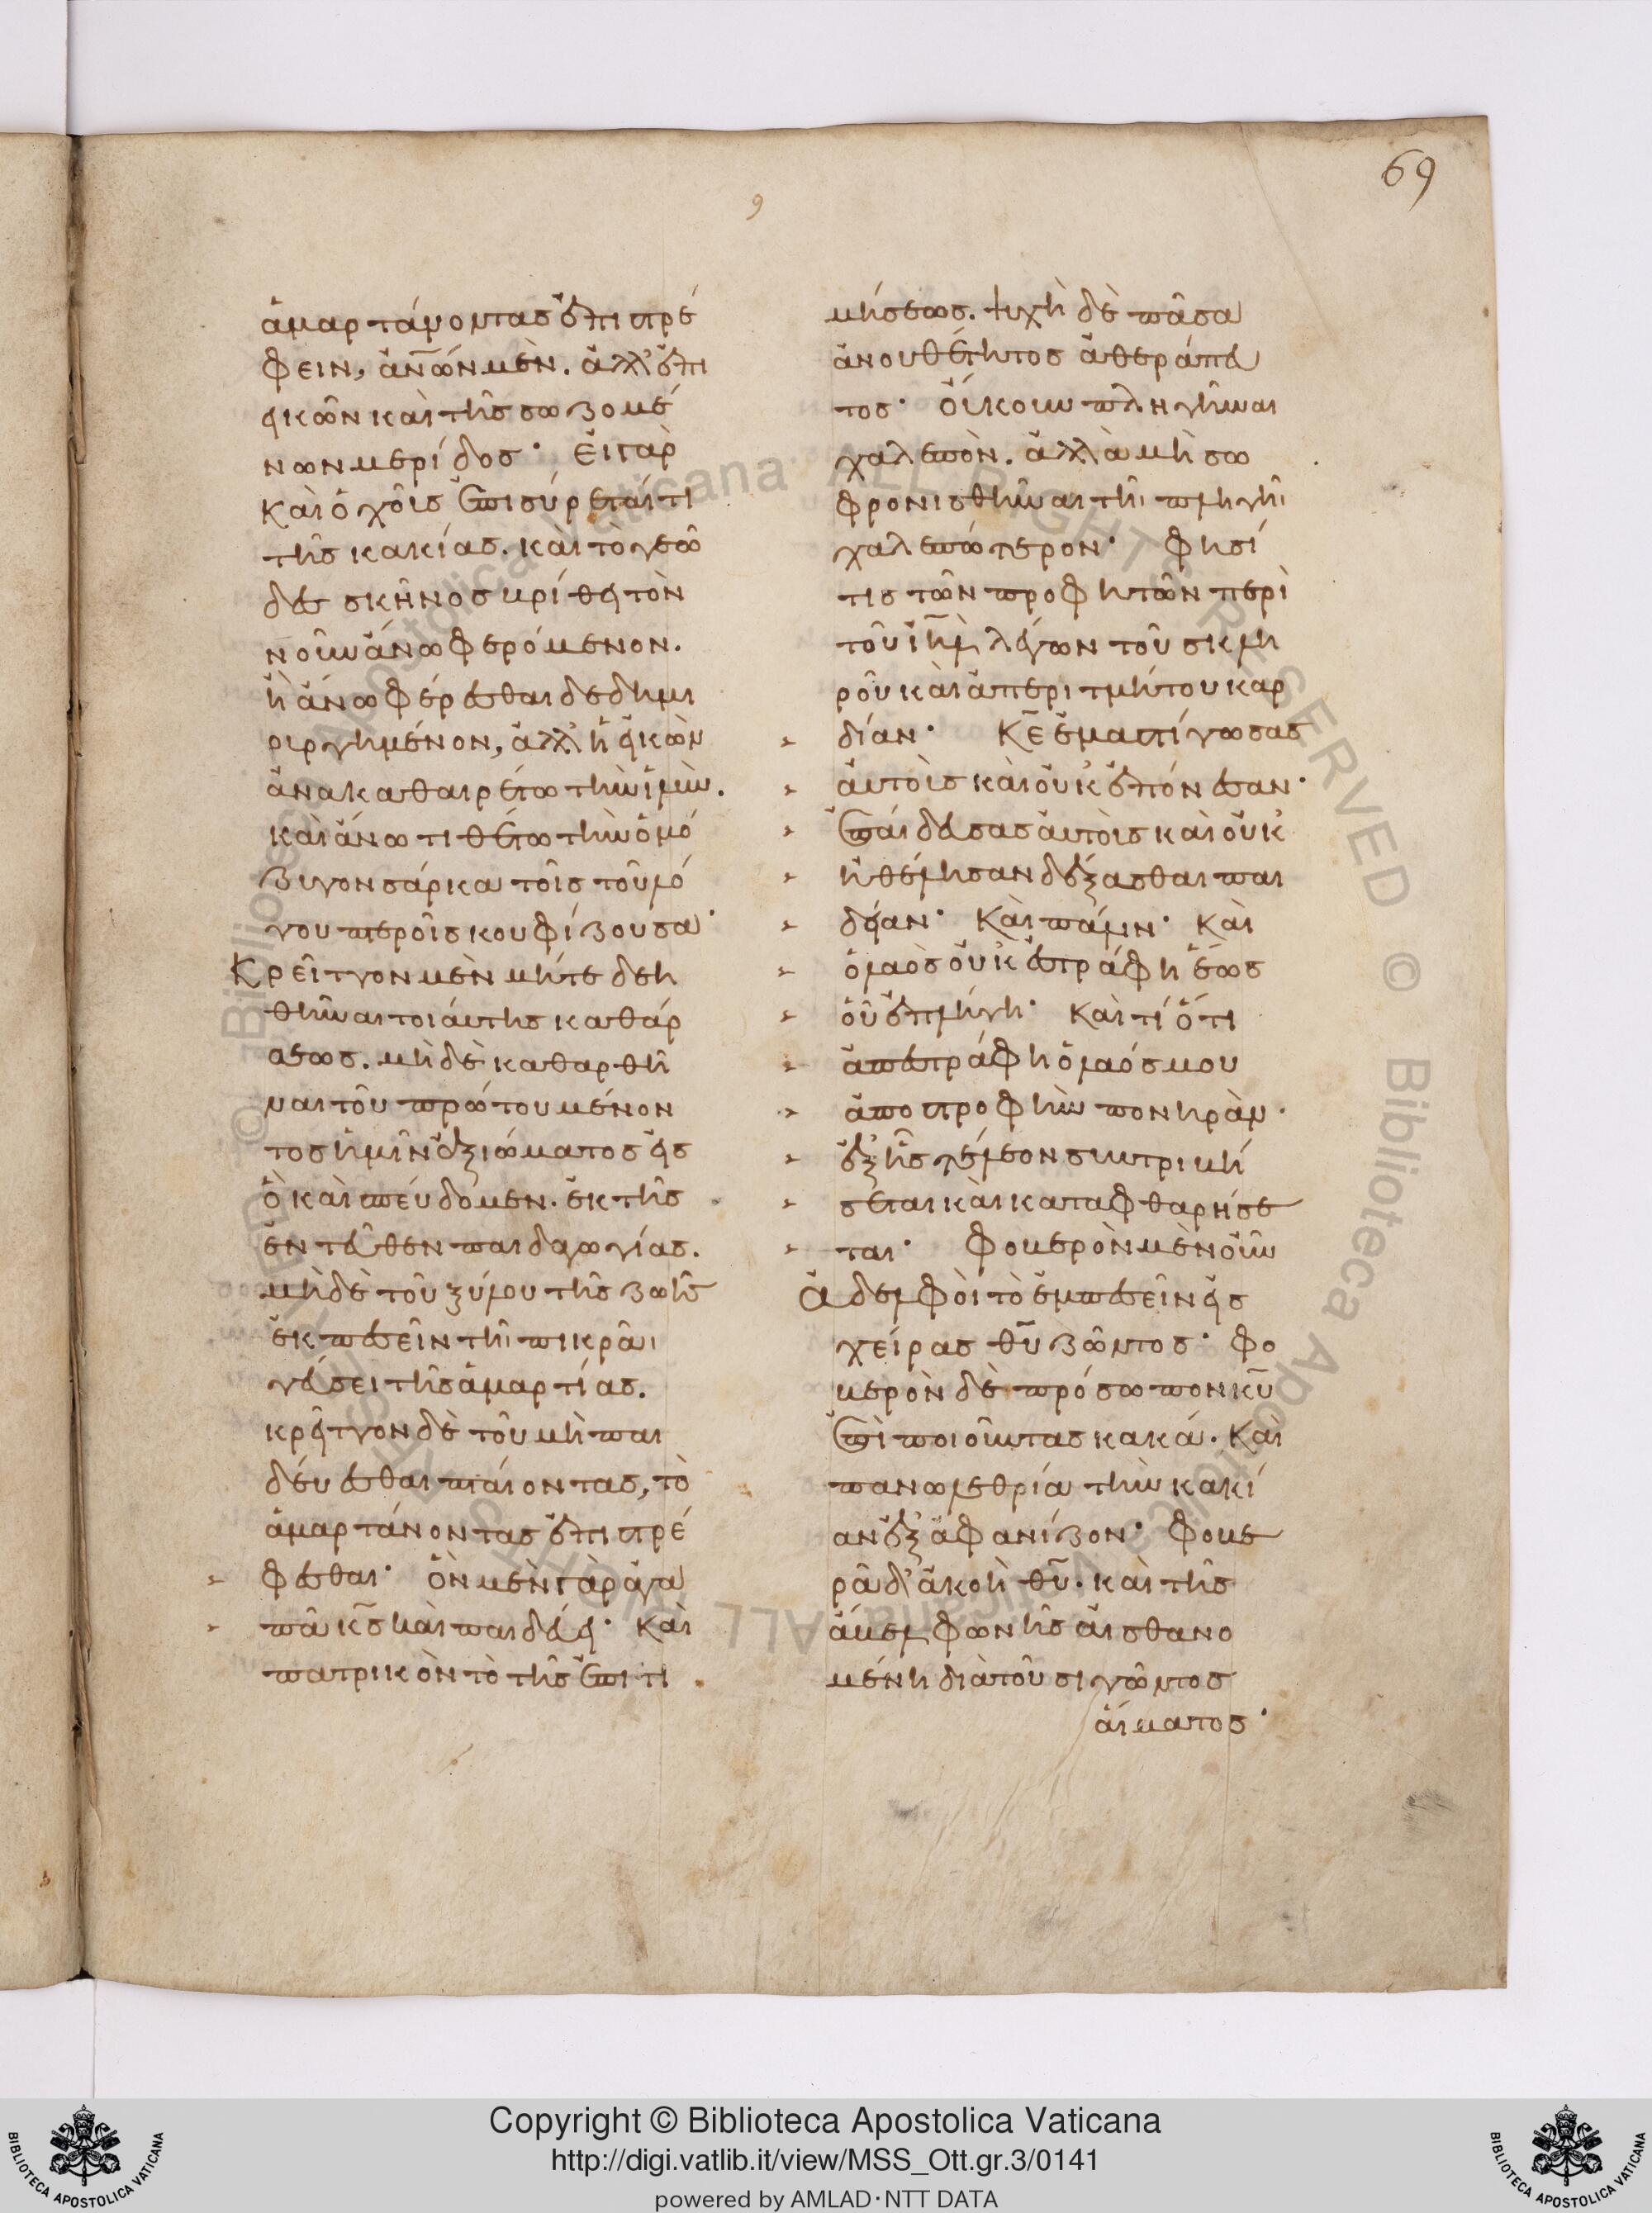 69
9
ἁμαρτάνοντας ἐπιστρέ
φειν, ἀνω̅ν μὲν. ἀλλ' ἐπι
εικῶν καὶ τῆς σωζομέ
νων μερίδος· εἰ γὰρ
καὶ ὁ χοῦς ἐπισύρεταί τι
τῆς κακίας. καὶ τὸ γεῶ
δες σκῆνος βρίθει τὸν
νοῦν ἄνω φερόμενον.
ἢ ἄνω φέρεσθαι δεδημι
ουργημένον, ἀλλ' ἡ εἰκὼν
ἀνακαθαιρέτω τὴν ἰλὺν.
καὶ ἄνω τιθέτω τὴν ὁμό
ζυγον σάρκα τοῖς τοῦ λό
γου πτεροῖς κουφίζουσα·
Κρεῖττον μὲν μήτε δεη
θῆναι τοιαύτης καθάρ
σεως. μὴ δὲ καθαρθῆ
ναι τοῦ πρώτου μένον
τος ἡμῖν ἀξιώματος εἰς
ὃ καὶ σπεύδομεν. ἐκ τῆς
ἐντεῦθεν παιδαγωγίας.
μὴ δὲ τοῦ ξύλου τῆς ζωῆς
ἐκπεσεῖν τῆι πικρᾶι
γεύσει τῆς ἁμαρτίας.
κρεῖττον δὲ τοῦ μὴ παι
δεύεσθαι πταίοντας, τὸ
ἁμαρτάνοντας ἐπιστρέ
φεσθαι· ὃν μὲν γὰρ ἀγα
πᾶ κ̅ς̅ καὶ παιδεύει· καὶ
πατρικὸν τὸ τῆς ἐπιτι
μήσεως. ψυχὴ δὲ πᾶσα
ἀνουθέτητος ἀθεράπευ
τος· οὔκουν πληγῆναι
χαλεπὸν. ἀλλὰ μὴ σω
φρονισθῆναι τῆι πληγῆι
χαλεπώτερον· φησί
τις τῶν προφητῶν περὶ
τοῦ ἰ̅η̅λ̅ λέγων τοῦ σκλη
ροῦ καὶ ἀπεριτμήτου καρ
δίαν· κ̅ε̅ ἐμαστίγωσας
αὐτοὺς καὶ οὐκ ἐπόνεσαν·
ἐπαίδευσας αὐτοὺς καὶ οὐκ
ἠθέλησαν δέξασθαι παι
δείαν· καὶ πάλιν· καὶ
ὁ λαὸς οὐκ ἐστράφη ἕως
οὗ ἐπλήγη· καὶ τί ὅτι
ἀπεστράφη ὁ λαός μου
ἀποστροφὴν πονηρὰν·
ἐξ ἧς τέλεον συντριβή
σεται καὶ καταφθαρήσε
ται· φοβερὸν μὲν οὖν
ἀδελφοὶ τὸ ἐμπεσεῖν εἰς
χεῖρας θ̅υ̅ ζῶντος· φο
βερὸν δὲ πρόσωπον κ̅υ̅
ἐπὶ ποιοῦντας κακά. καὶ
πανωλεθρία τὴν κακί
αν ἐξαφανίζον· φοβε
ρὰ δ' ἀκοὴ θ̅υ̅. καὶ τῆς
ἄβελ φωνῆς αἰσθανο
μένη διὰ τοῦ σιγῶντος
αἵματος·
Copyright © Biblioteca Apostolica Vaticana
http://digi.vatlib.it/view/MSS_Ott.gr.3/0141
powered by AMLAD·NTT DATA
BIBLIOTECA APOSTOLICA VATICANA
BIBLIOTECA APOSTOLICA VATICANA